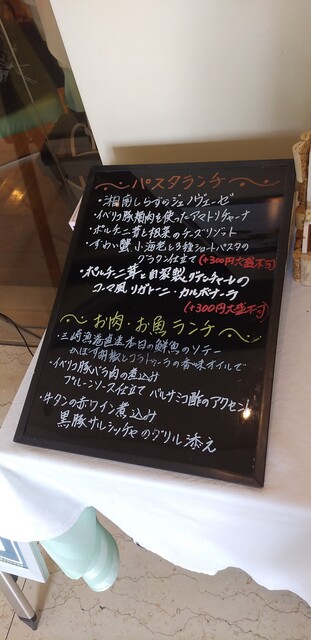 パスタランチ
・湘南しらすのジェノヴェーゼ
・イベリコ豚頬肉を使ったアマトリチャーナ
・ポルチーニ茸と根菜のチーズリゾット
・ずわい蟹 小海老と3種ショートパスタの
グラタン仕立て(+300円大盛不可)
・ポルチーニ茸と自家製グアンチャーレの
ローマ風リガトーニ・カルボナーラ
(+300円大盛不可)
お肉・お魚ランチ
・三崎漁港直送本日の鮮魚のソテー
かぼす胡椒とコラトゥーラの香味オイルで
・イベリコ豚バラ肉の煮込み
プルーンソース仕立て バルサミコ酢のアクセント
・牛タンの赤ワイン煮込み
黒豚サルシッチャのグリル添え